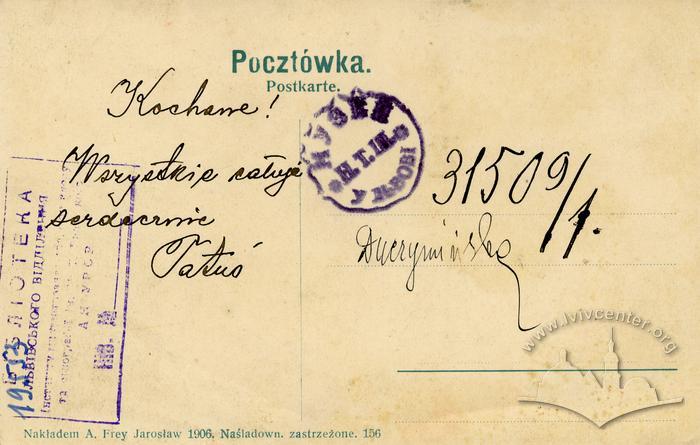 Pocztówka.
Postkarte.
Kochane!
Wszystkie całuję
serdecznie
Tatuś
МУЗЕЙ
Н.Т.Ш.
У ЛЬВОВІ
31509/1.
БІБЛІОТЕКА
ЛЬВІВСЬКОГО ВІДДІЛЕННЯ
АН УРСР
ІНВ. №
19453
www.lvivcenter.org
Nakładem A. Frey Jarosław 1906. Naśladown. zastrzeżone. 156